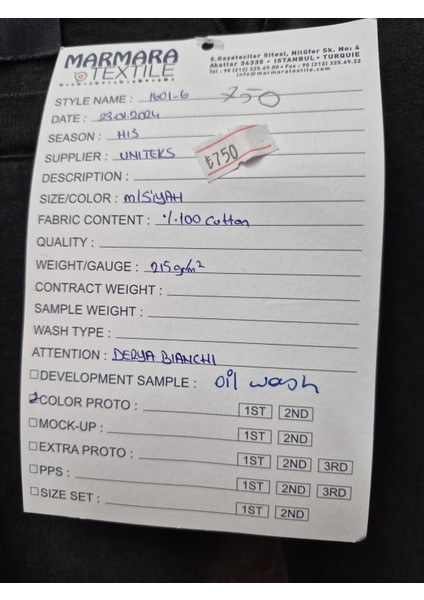 MARMARA
TEXTILE
S.Gazeteciler Sitesi, Nilüfer Sk. No: 4
Akatlar 34335 • İSTANBUL • TURQUIE
Tel : 90 (212) 325.69.00 • Fax : 90 (212) 325.69.22
info@marmaratextile.com
STYLE NAME : 1601-6 750
DATE : 23.01.2024
SEASON : H15
SUPPLIER : UNITEKS ₺750
DESCRIPTION :
SIZE/COLOR : M/SİYAH
FABRIC CONTENT : %100 Cotton
QUALITY :
WEIGHT/GAUGE : 215gr/m²
CONTRACT WEIGHT :
SAMPLE WEIGHT :
WASH TYPE :
ATTENTION : DERYA BIANCHI
DEVELOPMENT SAMPLE : oil wash
COLOR PROTO : 1ST 2ND
MOCK-UP : 1ST 2ND
EXTRA PROTO : 1ST 2ND 3RD
PPS : 1ST 2ND 3RD
SIZE SET : 1ST 2ND